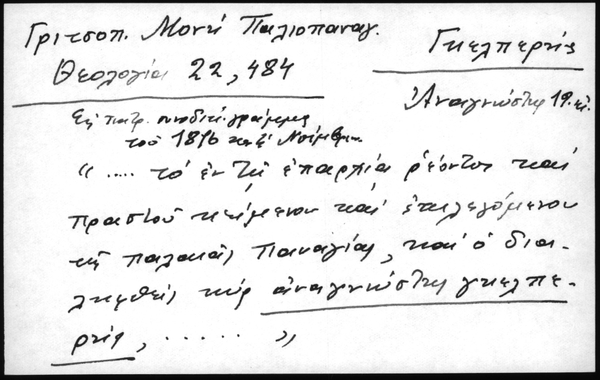 Γριτσοπ. Μονή Παλιοπαναγ.
Θεολογία 22, 484
Γκελπερής
Ἀναγνώστης 19. αἰ.
Ἐν πατρ. συνοδικ. γράμμα
τοῦ 1816 Νοέμβρ.
“ ..... τὸ ἐν τῇ ἐπαρχίᾳ ῥέοντος καὶ
πραστοῦ κείμενον καὶ ἐπιλεγόμενον
τῆς παλαιᾶς Παναγίας, καὶ ὁ δια-
ληφθεὶς κὺρ ἀναγνώστης γκελπε-
ρής, ...... ”